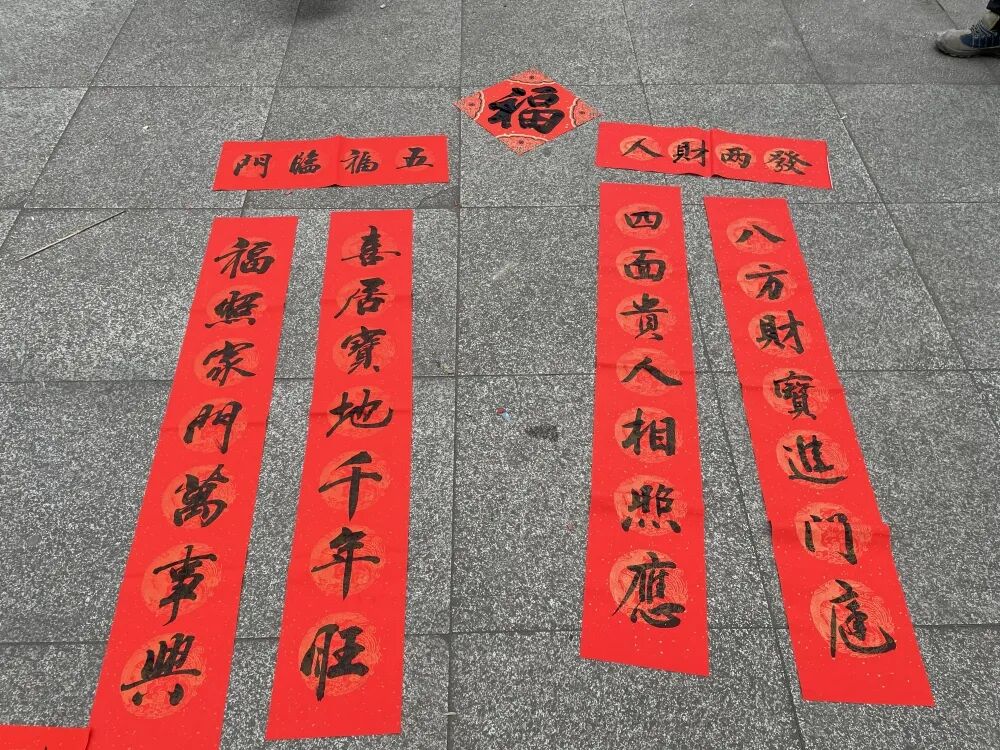 福
五福臨門
喜居寶地千年旺
福照家門萬事興
人財两發
四面貴人相照應
八方財寶進门庭